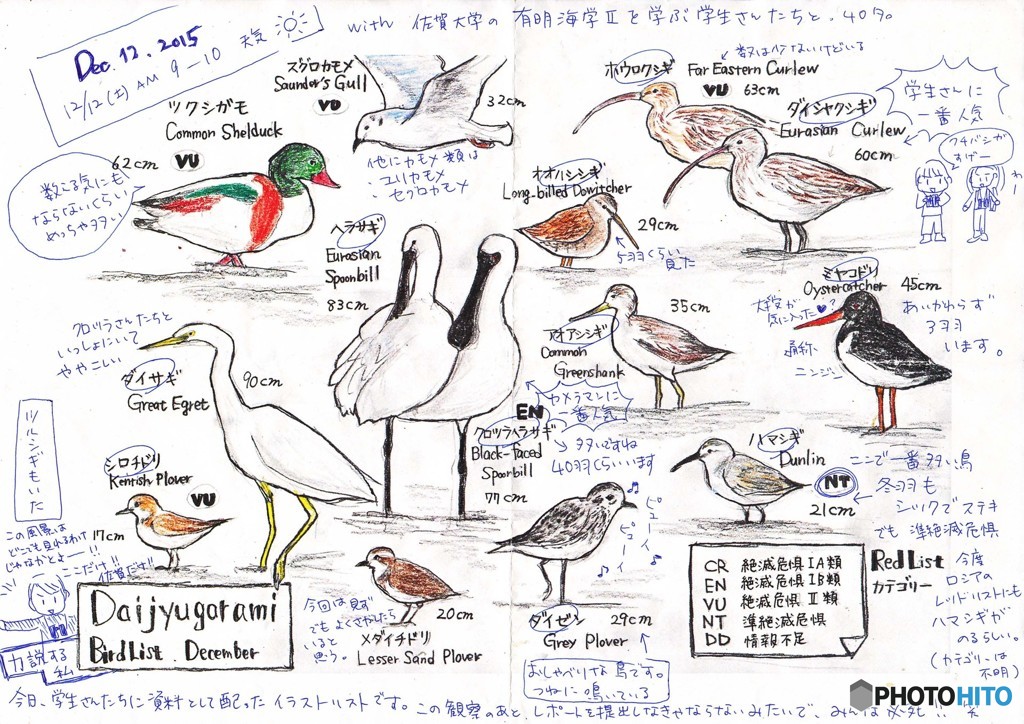 Dec. 12. 2015
12/12 (土) AM 9-10 天気
with 佐賀大学の有明海学Ⅱを学ぶ学生さんたちと。40名。
ズグロカモメ
Saunder's Gull
VU
32cm
他にカモメ類は
・ユリカモメ
セグロカモメ
ツクシガモ
Common Shelduck
62cm
VU
数える気にも
ならないくらい
めっちゃ多い
ホウロクシギ
Far Eastern Curlew
VU 63cm
数は少ないけどいる
ダイシャクシギ
Eurasian Curlew
60cm
学生さんに
一番人気
クチバシが
すげー
わー
オオハシシギ
Long-billed Dowitcher
29cm
5羽くらい
見た
ヘラサギ
Eurasian
Spoonbill
83cm
ミヤコドリ
Oystercatcher
45cm
あいかわらず
3羽
います。
気に入った
通称
ニンジン
アオアシシギ
Common
Greenshank
35cm
クロツラさんたちと
いっしょにいて
ややこしい
ダイサギ
Great Egret
90cm
EN
クロツラヘラサギ
Black-faced
Spoonbill
77cm
カメラマンに
一番人気
多いですね
40羽くらいいます
ハマシギ
Dunlin
NT
21cm
ここで一番多い鳥
冬羽も
シックでステキ
でも 準絶滅危惧
ツルシギもいた
シロチドリ
Kentish Plover
VU
17cm
この風景は
どこでも見れるわけ
じゃなかとよー!!
ここだけ!!
佐賀だけ!!
力説する
私
メダイチドリ
Lesser Sand Plover
20cm
今回は見ず
でもよくさがしたら
いると
思う。
ダイゼン
Grey Plover
29cm
ピューイ
ピューイ
おしゃべりな鳥です。
つねに鳴いている
CR 絶滅危惧ⅠA類
EN 絶滅危惧ⅠB類
VU 絶滅危惧Ⅱ類
NT 準絶滅危惧
DD 情報不足
Red List
カテゴリー
今度
ロシアの
レッドリストにも
ハマシギが
のるらしい。
(カテゴリーは
不明)
Daijyugarami
Bird List December
今日、学生さんたちに資料として配ったイラストリストです。この観察のあと、レポートを提出しなきゃならないみたいで、みんな必死!! 笑
PHOTOHITO